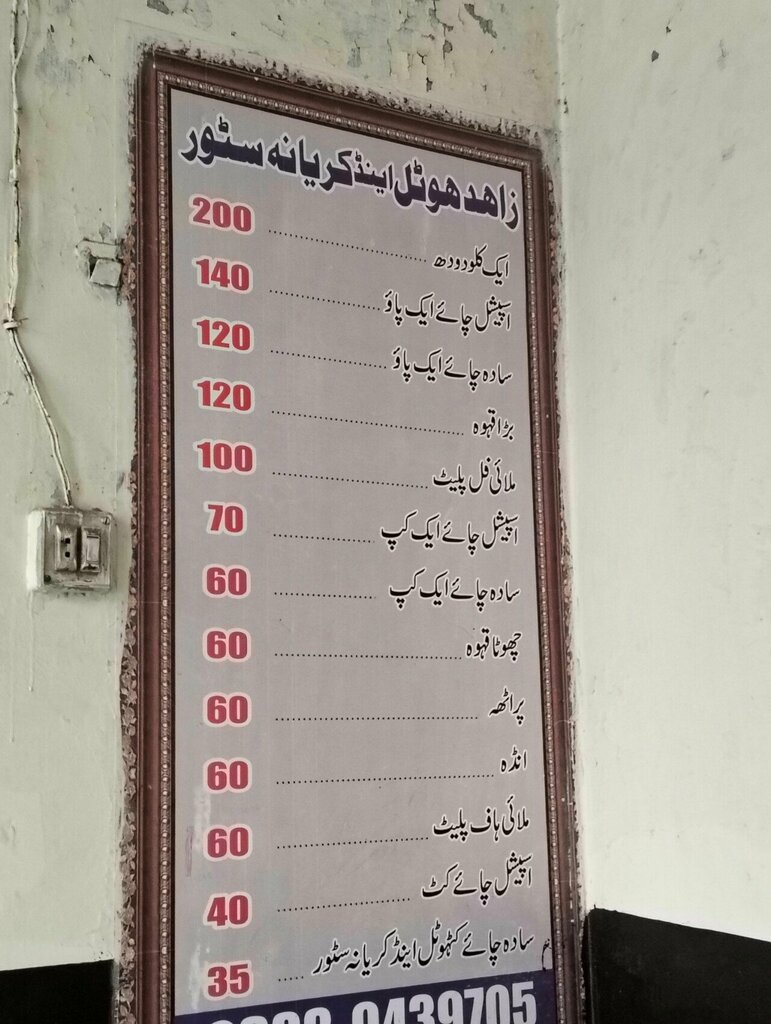 زاهد هوٹل اینڈ کریانہ سٹور
ایک کلو دودھ ........ 200
اسپیشل چائے ایک پاؤ ........ 140
سادہ چائے ایک پاؤ ........ 120
بڑا قہوہ ........ 120
ملائی فل پلیٹ ........ 100
اسپیشل چائے ایک کپ ........ 70
سادہ چائے ایک کپ ........ 60
چھوٹا قہوہ ........ 60
پراٹھہ ........ 60
انڈہ ........ 60
ملائی ہاف پلیٹ ........ 60
اسپیشل چائے کٹ ........ 40
سادہ چائے کٹہوٹل اینڈ کریانہ سٹور ..... 35
9439705